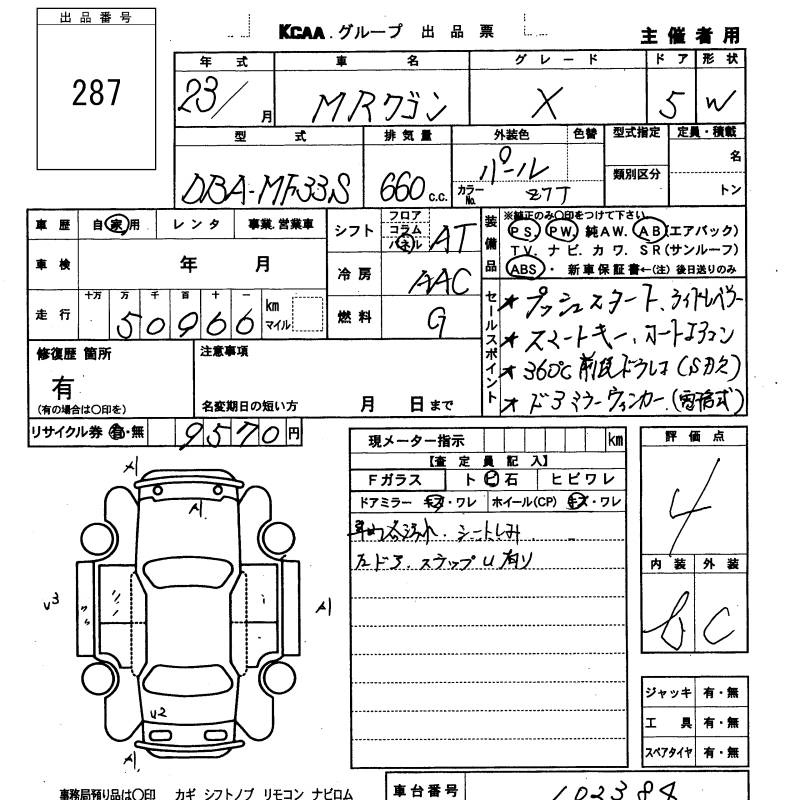 出品番号
287
KCAA.グループ 出品票
主催者用
年式 車名 グレード ドア 形状
23/ 月 MRワゴン X 5 W
型式 排気量 外装色 色替 型式指定 定員・積載
DBA-MF33S 660 c.c. パール カラーNo. Z7T 類別区分 名 トン
車歴 自家用 レンタ 事業.営業車
シフト フロア コラム パネル AT
装備品 ※純正のみ〇印をつけて下さい。
PS. PW. 純AW. AB(エアバック)
TV. ナビ. カワ. SR(サンルーフ)
ABS・ 新車保証書←(注)後日送りのみ
車検 年 月
冷房 AAC
走行 十万 万 千 百 十 一 km マイル
50966
燃料 G
セールスポイント
★プッシュスタート、ライトレベラー
★スマートキー、オートエアコン
★360℃
★ドアミラーウィンカー.(電格式)
修復歴 箇所
有
(有の場合は〇印を)
注意事項
名変期日の短い方 月 日まで
リサイクル券 有・無 9570円
現メーター指示 km
【査定員記入】
Fガラス ト ビ 石 ヒビワレ
ドアミラー キズ・ワレ ホイール(CP) キズ・ワレ
シートしみ
左ドア.ステップU有り
評価点
4
内装 外装
b C
A1
A1
V3
A1
V2
A1
ジャッキ 有・無
工具 有・無
スペアタイヤ 有・無
事務局預り品は〇印 カギ シフトノブ リモコン ナビロム
車台番号 102384